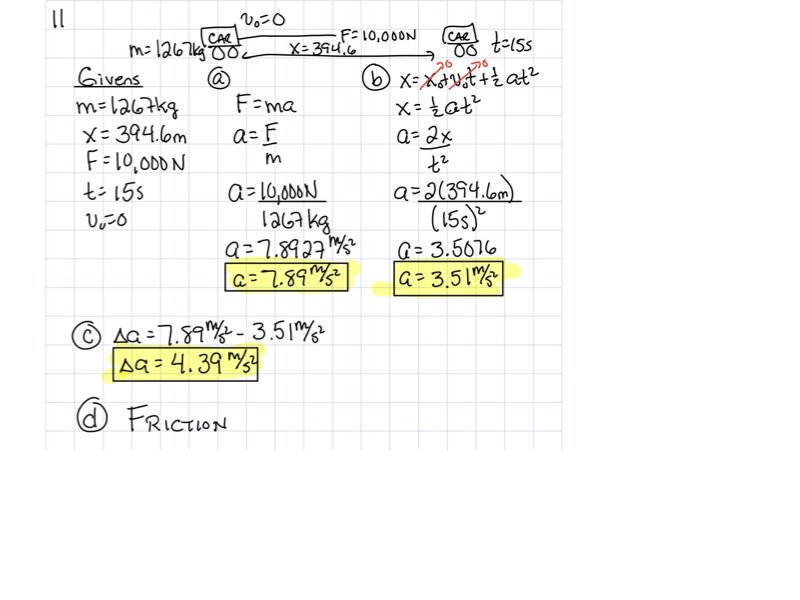 11
v₀=0
CAR
F=10,000N
CAR
t=15s
m=1267kg
x=394.6
Givens
m=1267kg
x=394.6m
F=10,000N
t=15s
v₀=0
ⓐ
F=ma
a=F/m
a=10,000N/1267kg
a=7.8927 m/s²
a=7.89 m/s²
ⓑ x=x₀+v₀t+½at²
0 0
x=½at²
a=2x/t²
a=2(394.6m)/(15s)²
a=3.5076
a=3.51 m/s²
ⓒ Δa=7.89 m/s² - 3.51 m/s²
Δa=4.39 m/s²
ⓓ FRICTION